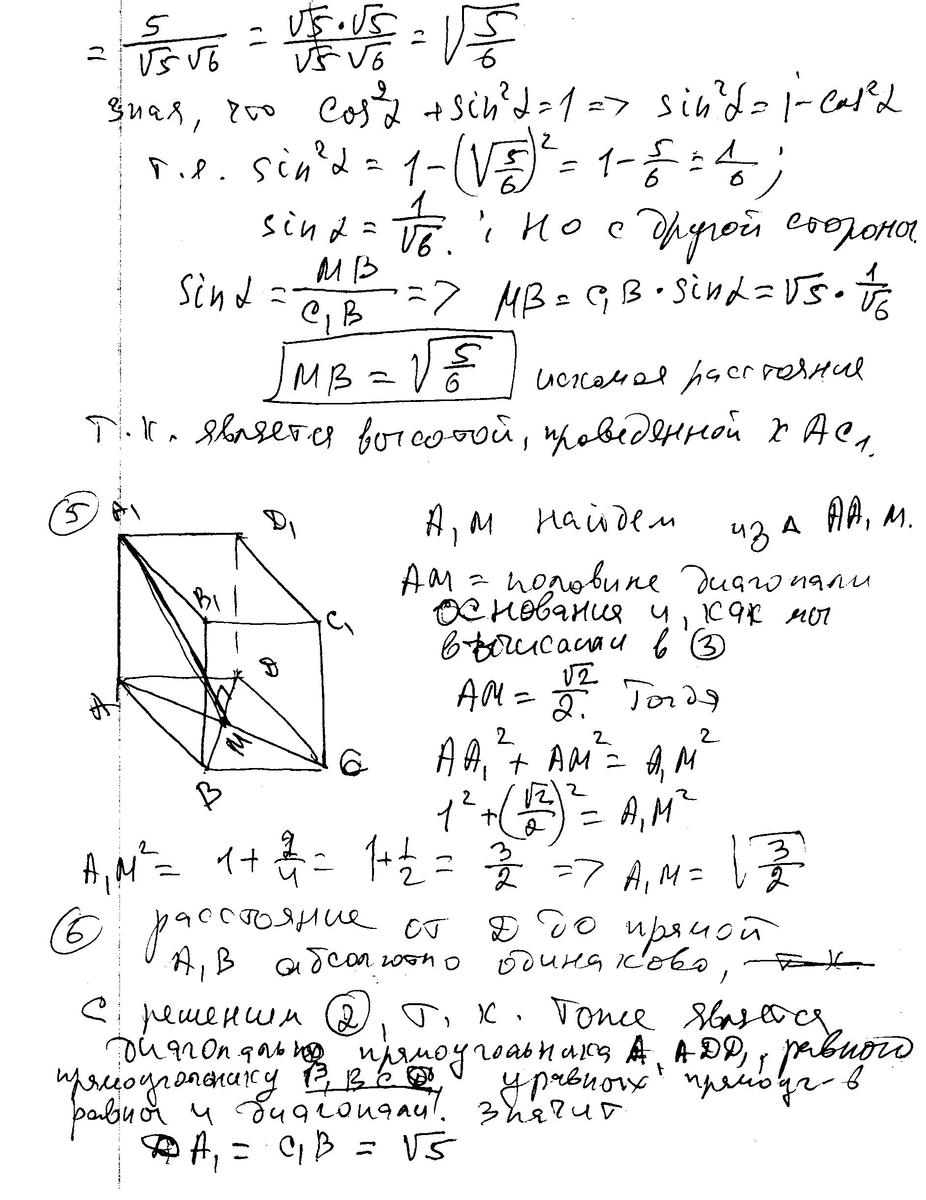 = 5/(√5 √6) = (√5·√5)/(√5 √6) = √(5/6)
зная, что cos²α + sin²α = 1 => sin²α = 1 - cos²α
т.е. sin²α = 1 - (√(5/6))² = 1 - 5/6 = 1/6 ;
sin α = 1/√6. ; Но с другой стороны.
sin α = MB/C₁B => MB = C₁B · sin α = √5 · 1/√6
MB = √(5/6) искомая расстояния
т.к. является высотой, проведянной к AC₁.
⑤ A₁ D₁
A₁M найдем из △ AA₁M.
AM = половине диагонали
B₁
основания и, как мы
C₁
вычислили в ③
D
AM = √2/2. Тогда
A
M
AA₁² + AM² = A₁M²
B C
1² + (√2/2)² = A₁M²
A₁M² = 1 + 2/4 = 1 + 1/2 = 3/2 => A₁M = √(3/2)
⑥ расстояние от D до прямой
A₁B абсолютно одинаково, т.к.
с решением ②, т.к. тоже является
диагональю прямоугольника A₁ADD₁, равного
прямоугольнику B₁BC у равных прямоуг-в
равны и диагонали. Значит
DA₁ = C₁B = √5